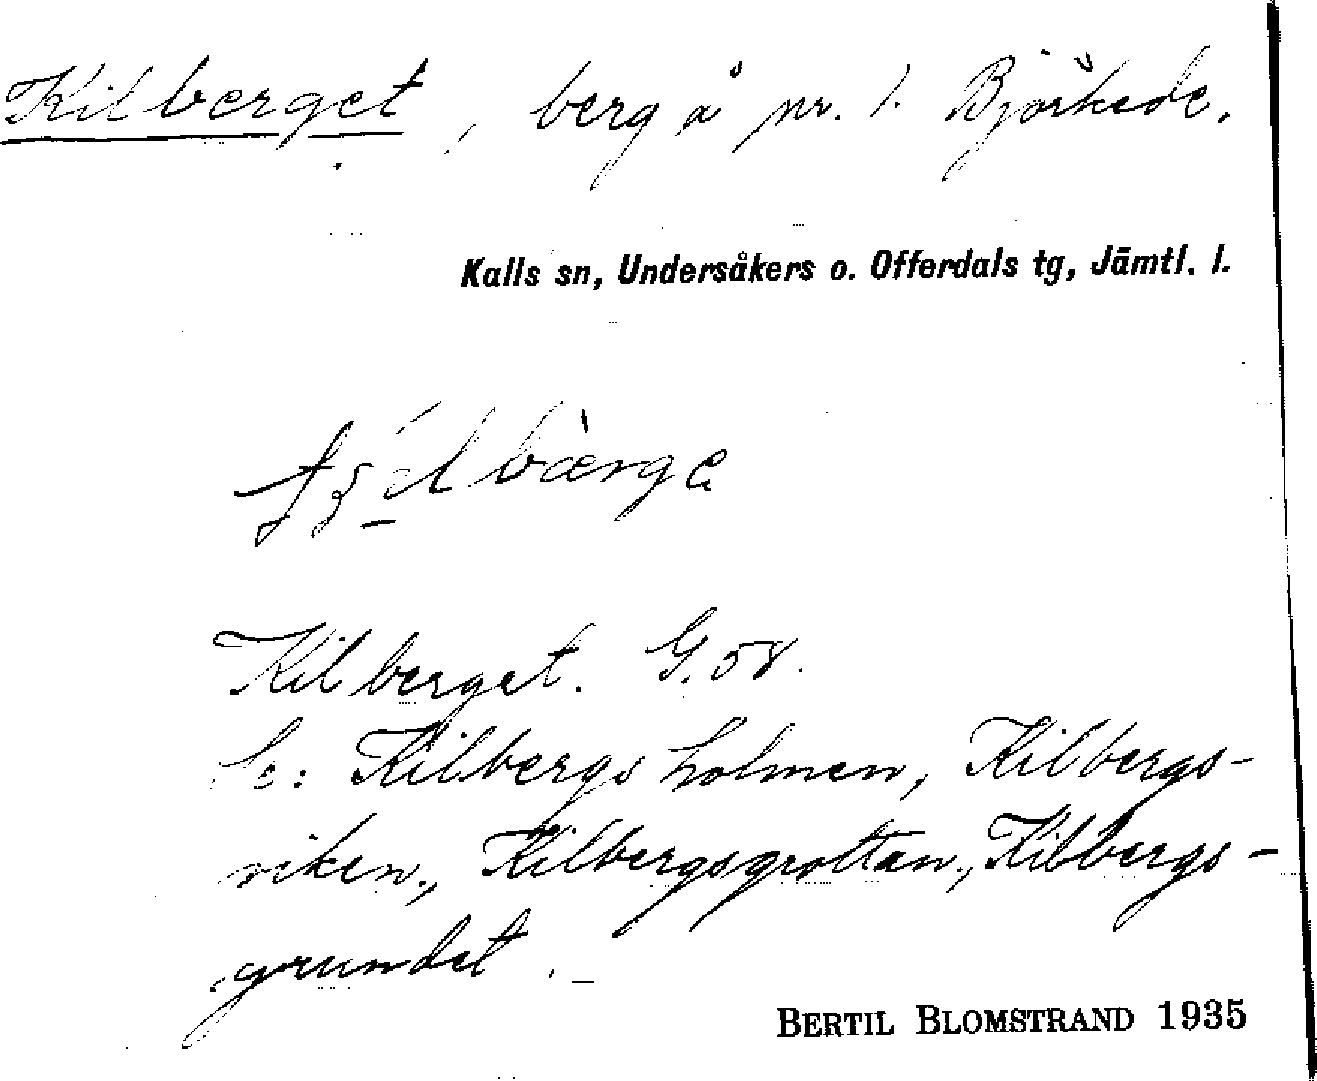 Kilberget, berg å nr. 1. Björkede.
Kalls sn, Undersåkers o. Offerdals tg, Jämtl. l.
Kilberget. G. 58.
Se: Kilbergsholmen, Kilbergs-
viken, Kilbergsgrottan, Kilbergs-
grundet.
BERTIL BLOMSTRAND 1935